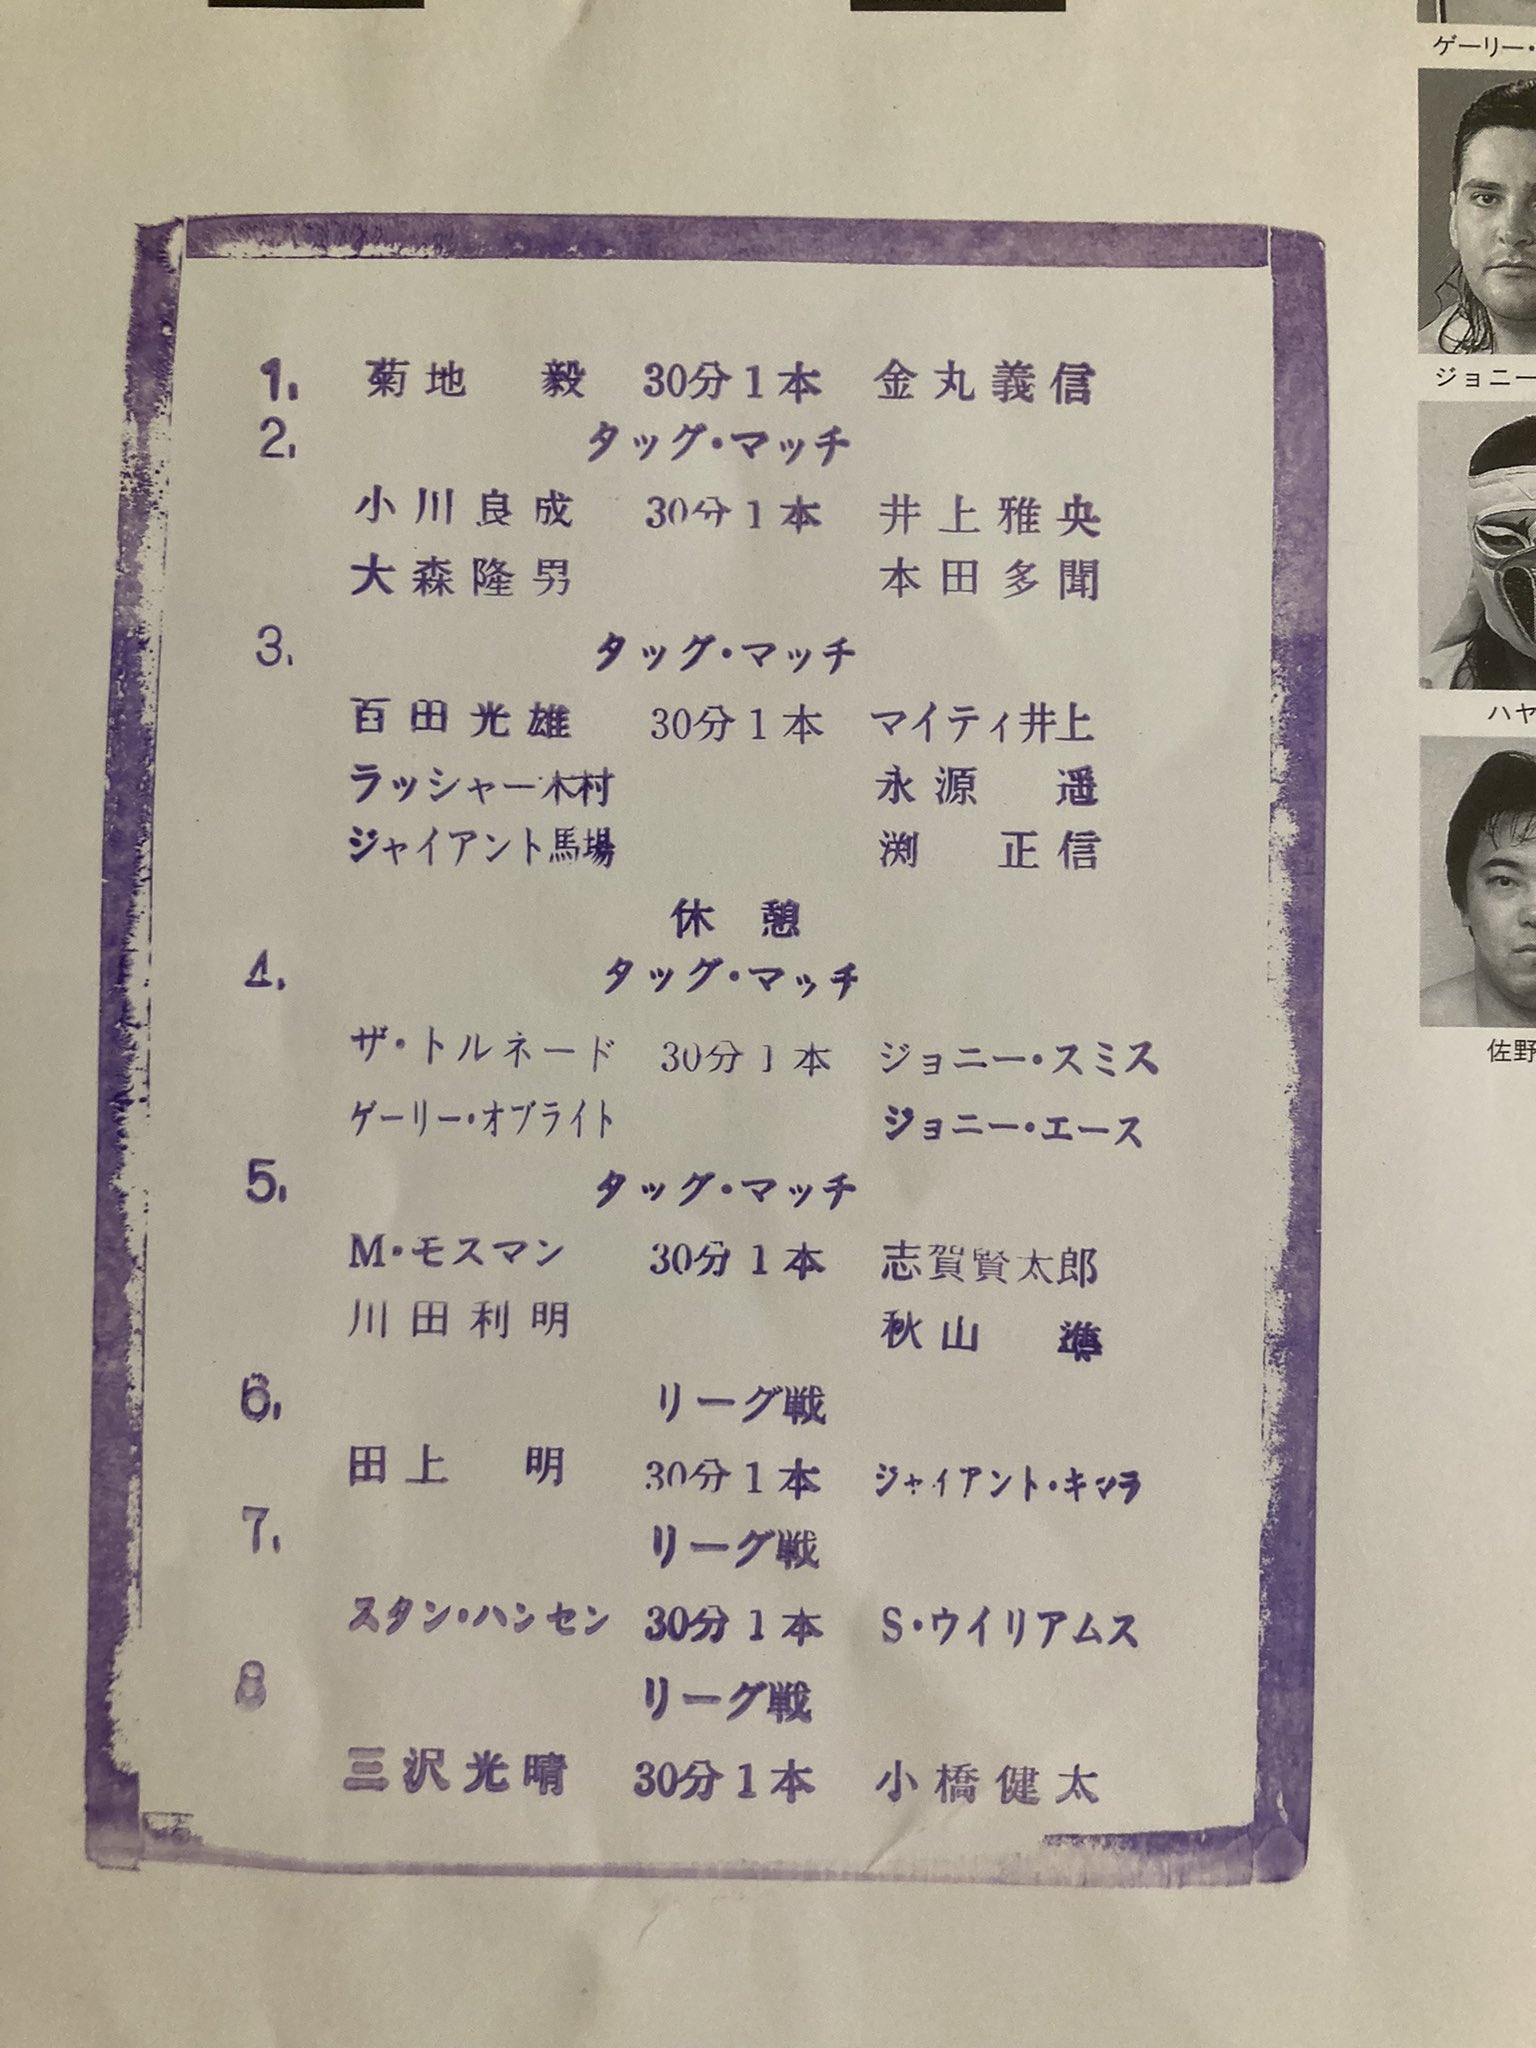 1. 菊地 毅 30分1本 金丸義信
2. タッグ・マッチ
小川良成 30分1本 井上雅央
大森隆男 本田多聞
3. タッグ・マッチ
百田光雄 30分1本 マイティ井上
ラッシャー木村 永源 遥
ジャイアント馬場 渕 正信
休憩
4. タッグ・マッチ
ザ・トルネード 30分1本 ジョニー・スミス
ゲーリー・オブライト ジョニー・エース
5. タッグ・マッチ
M・モスマン 30分1本 志賀賢太郎
川田利明 秋山 準
6. リーグ戦
田上 明 30分1本 ジャイアント・キマラ
7. リーグ戦
スタン・ハンセン 30分1本 S・ウイリアムス
8 リーグ戦
三沢光晴 30分1本 小橋健太
ゲーリー・
ジョニー
ハヤ
佐野